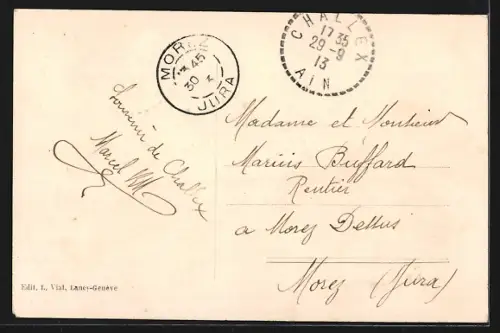 MOREZ
45
30
JURA
CHALLEX
17 35
29-9
13
AIN
Souvenir de Challex
Marcel
Madame et Monsieur
Marius Buffard
Rentier
a Morez Dessus
Morez (Jura)
Edit. L. Viat, Lancy-Genève